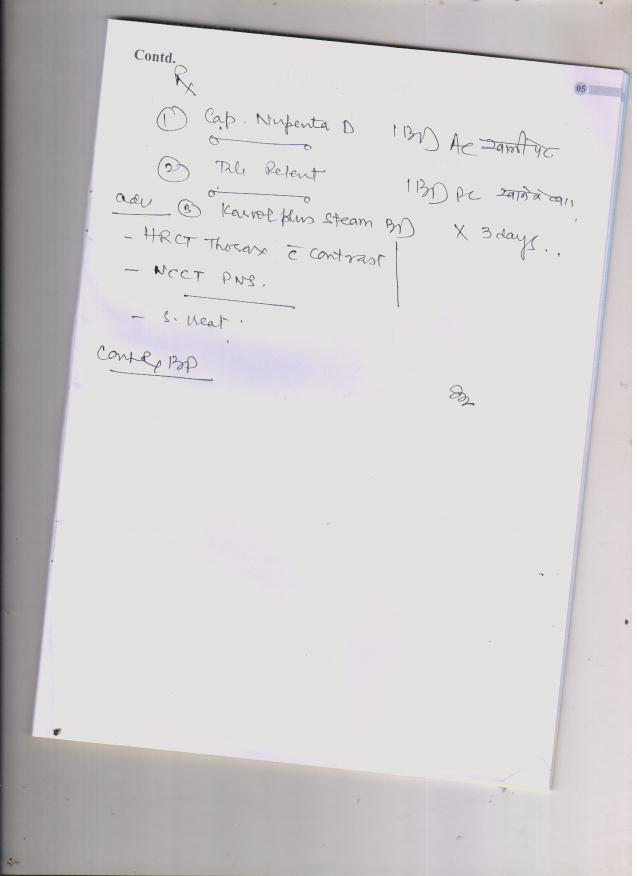 Contd.
05
Rx
① Cap. Nupenta D 1 BD AC खाली पेट
② Tab Relent 1 BD PC खाने के बाद
adv ③ Karvol plus steam BD X 3 days..
- HRCT Thorax c̄ contrast
- NCCT PNS.
- S. creat.
BP